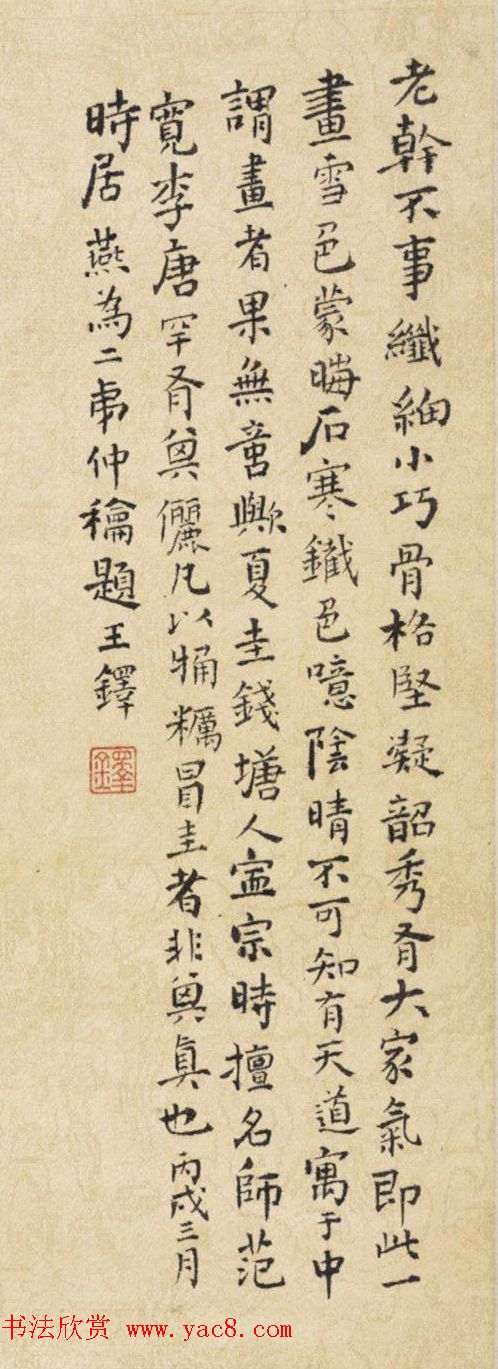 老幹不事纖細小巧骨格堅凝韶秀有大家氣即此一
畫雪色蒙晦石寒鐵色噫陰晴不可知有天道寓于中
謂畫者果無意歟夏圭錢塘人寍宗時擅名師范
寬李唐罕有與儷凡以犕糲冒圭者非與真也丙戌三月
時居燕為二弟仲龢題王鐸
鐸
书法欣赏 www.yac8.com